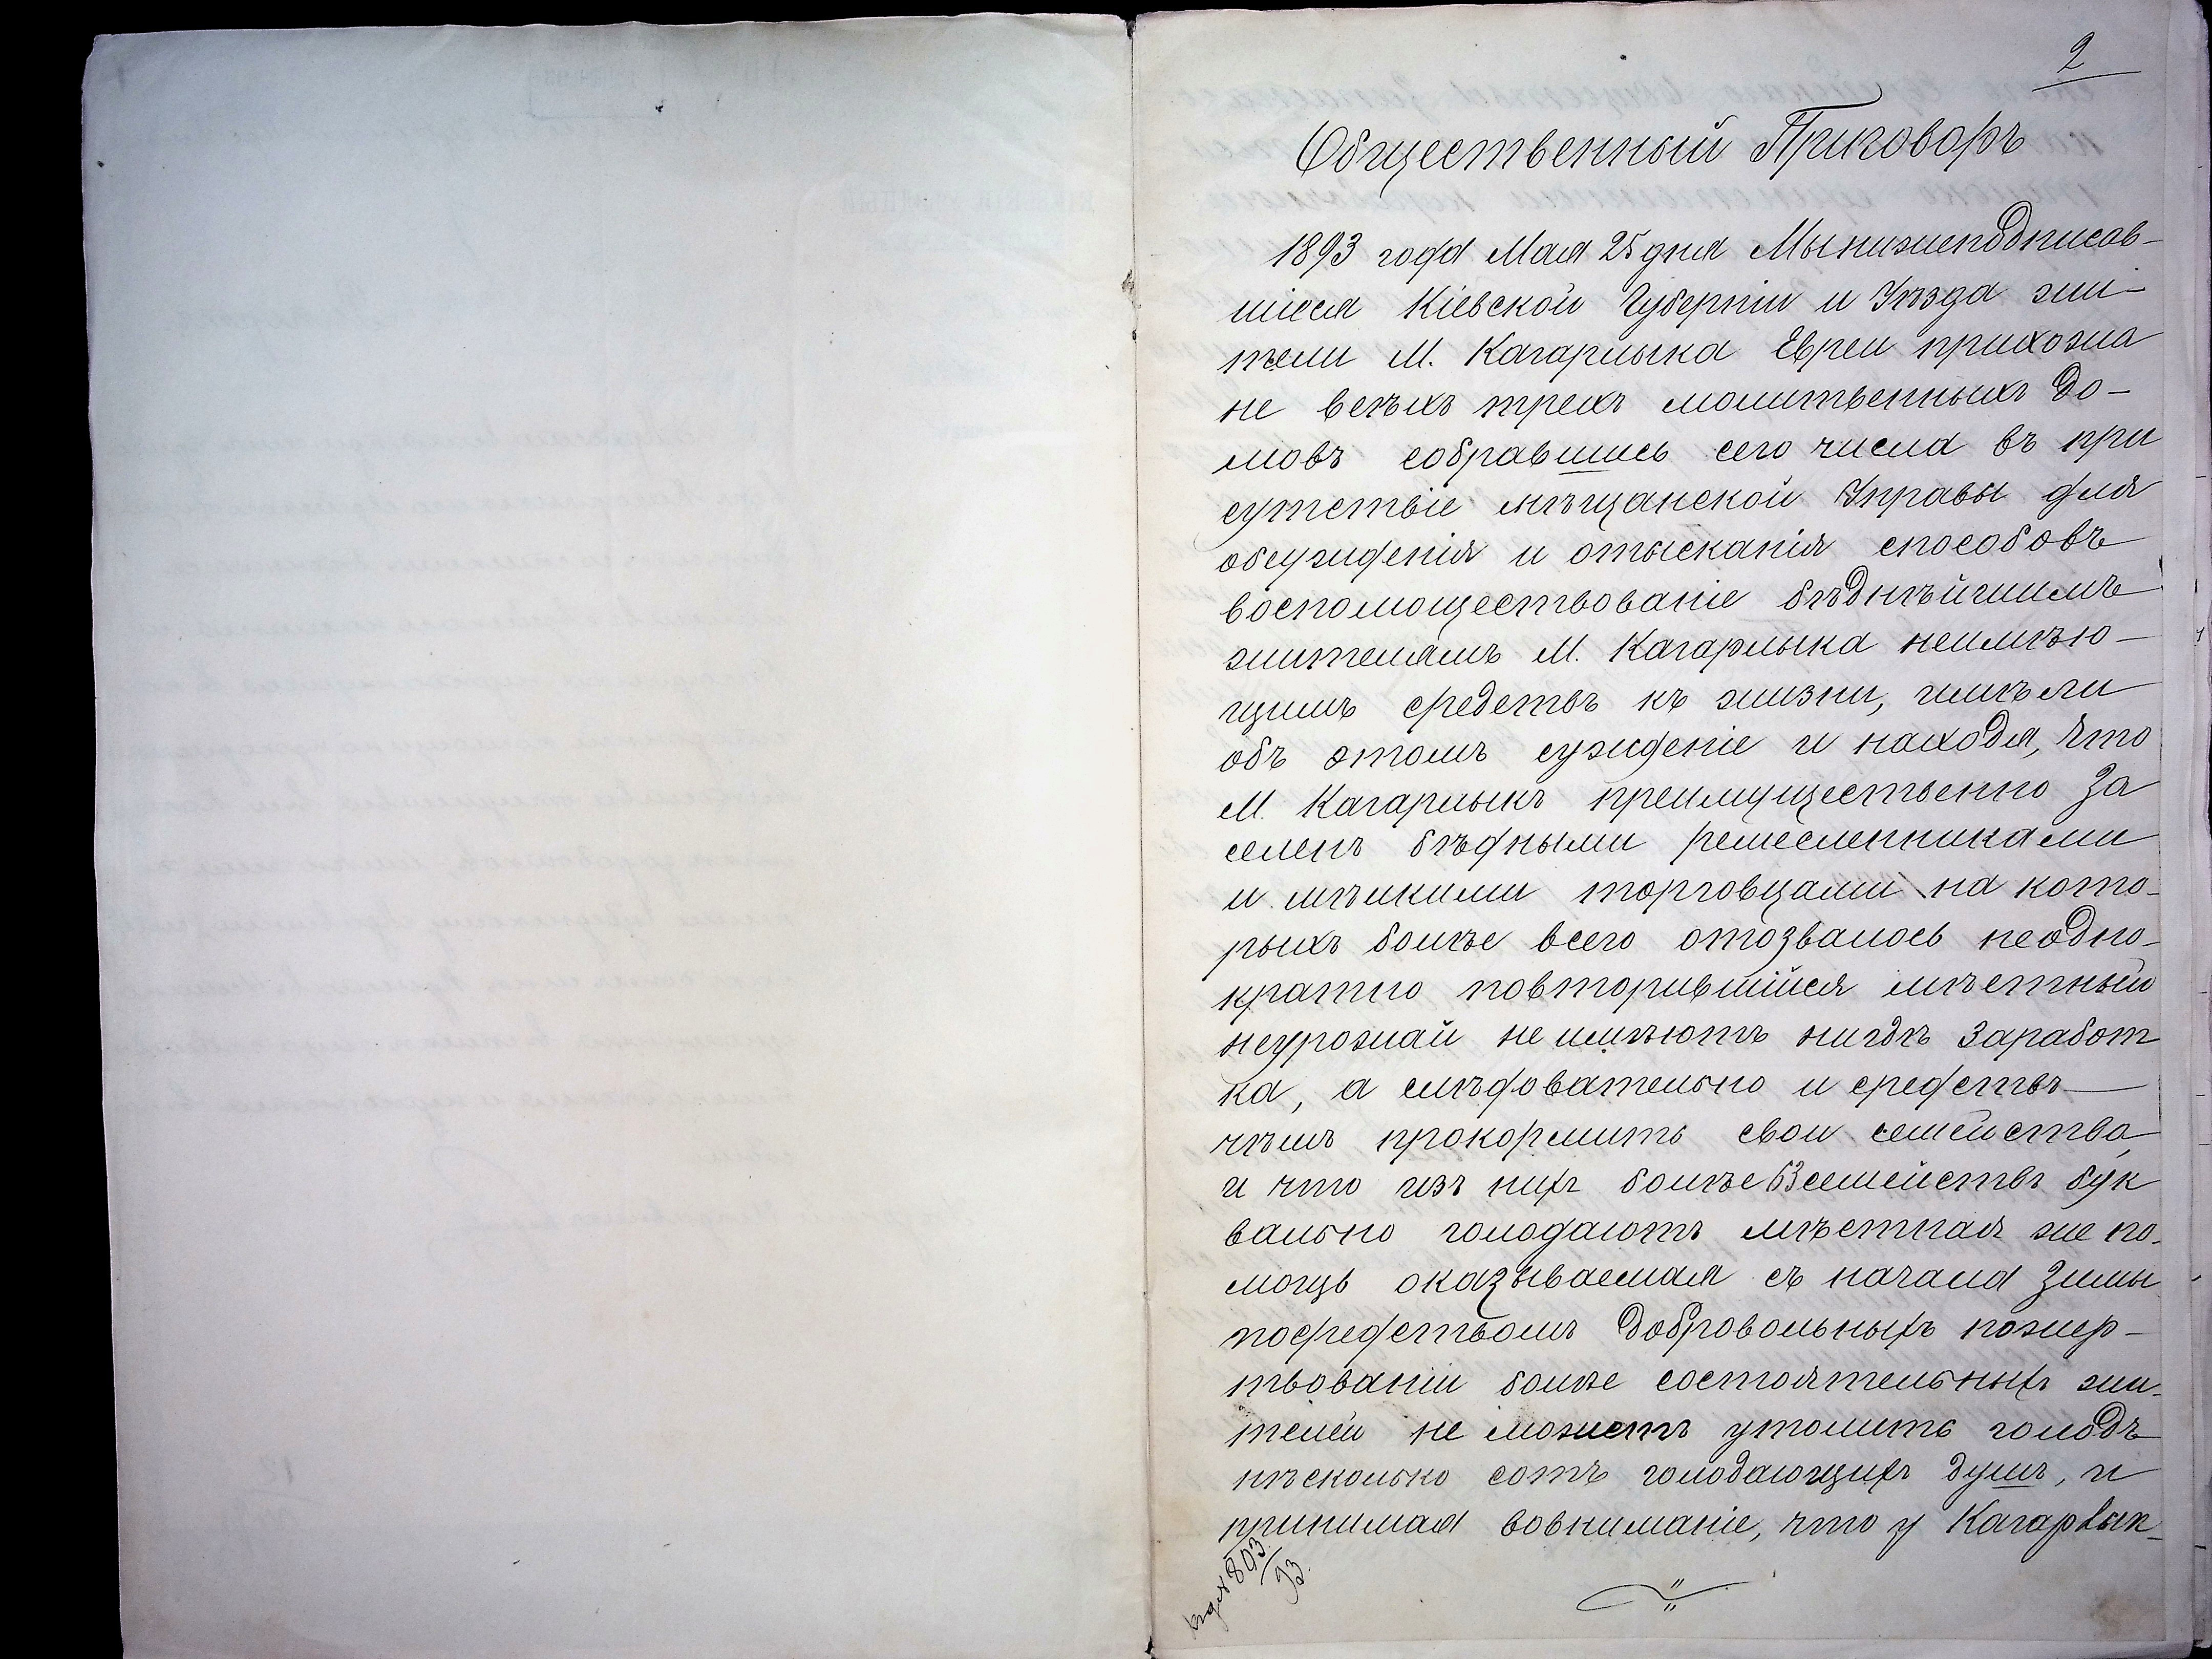 2
Общественный Приговоръ
1893 года Мая 25 дня Мы нижеподписав-
шіеся Кіевской Губерніи и Уѣзда жи-
тели М. Кагарлыка Евреи прихожа
не всѣхъ трехъ молитвенныхъ до-
мовъ собравшись сего числа въ при
сутствіе мѣщанской Управы для
обсужденія и отысканія способовъ
воспомоществованіе бѣднѣйшимъ
жителямъ М. Кагарлыка неимѣю-
щимъ средствъ къ жизни, имѣли
объ этомъ сужденіе и находя, что
М. Кагарлыкъ преимущественно за
селенъ бѣдными ремесленниками
и мѣлкими торговцами на кото-
рыхъ болѣе всего отозвалось неодно-
кратно повторившійся мѣстный
неурожай не имѣютъ нигдѣ заработ
ка, а слѣдовательно и средствъ
чѣмъ прокормить свои семейства,
и что изъ нихъ болѣе 63 семействъ бук
вально голодаютъ мѣстная же по-
мощь оказываемая съ начала зимы
посредствомъ добровольныхъ пожер-
твованіи болѣе состоятельныхъ жи-
телей не можетъ утолить голодъ
нѣсколько сотъ голодающихъ душъ, и
принимая вовниманіе, что у Кагарлык-
803/93.